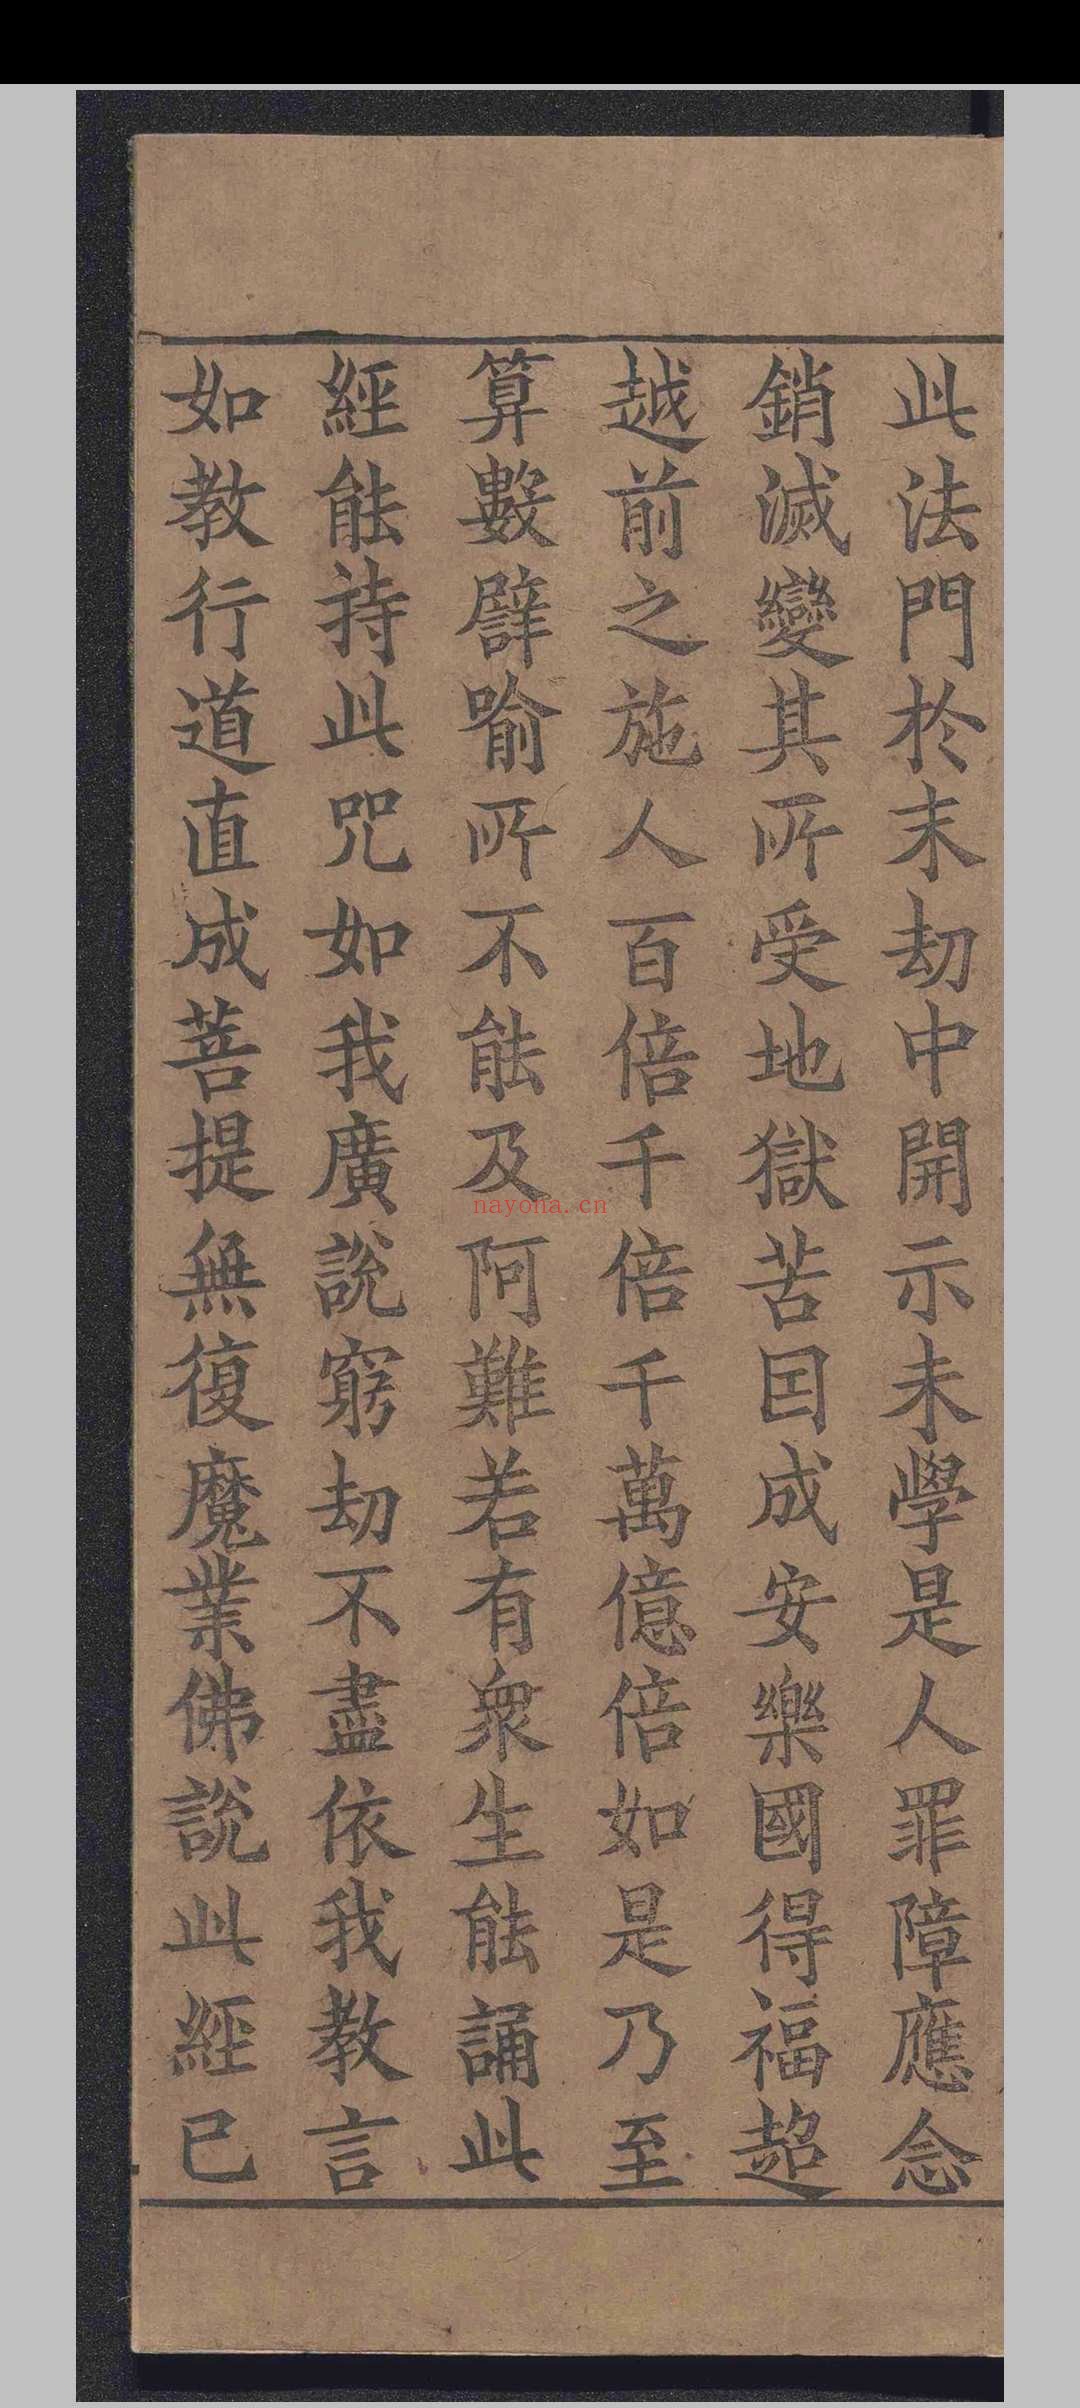 此法門於末劫中開示未學是人罪障應念
銷滅變其所受地獄苦因成安樂國得福超
越前之施人百倍千倍千萬億倍如是乃至
算數譬喻所不能及阿難若有衆生能誦此
經能持此咒如我廣說窮劫不盡依我教言
如教行道直成菩提無復魔業佛說此經已
nayona.cn